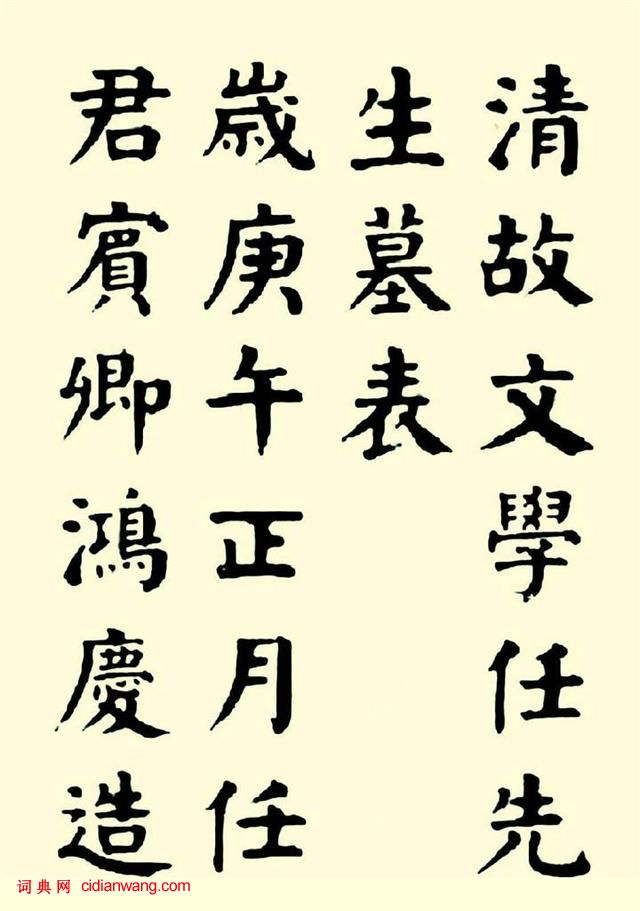 清故文學任先
生墓表
歲庚午正月任
君賓卿鴻慶造
词典网 cidianwang.com